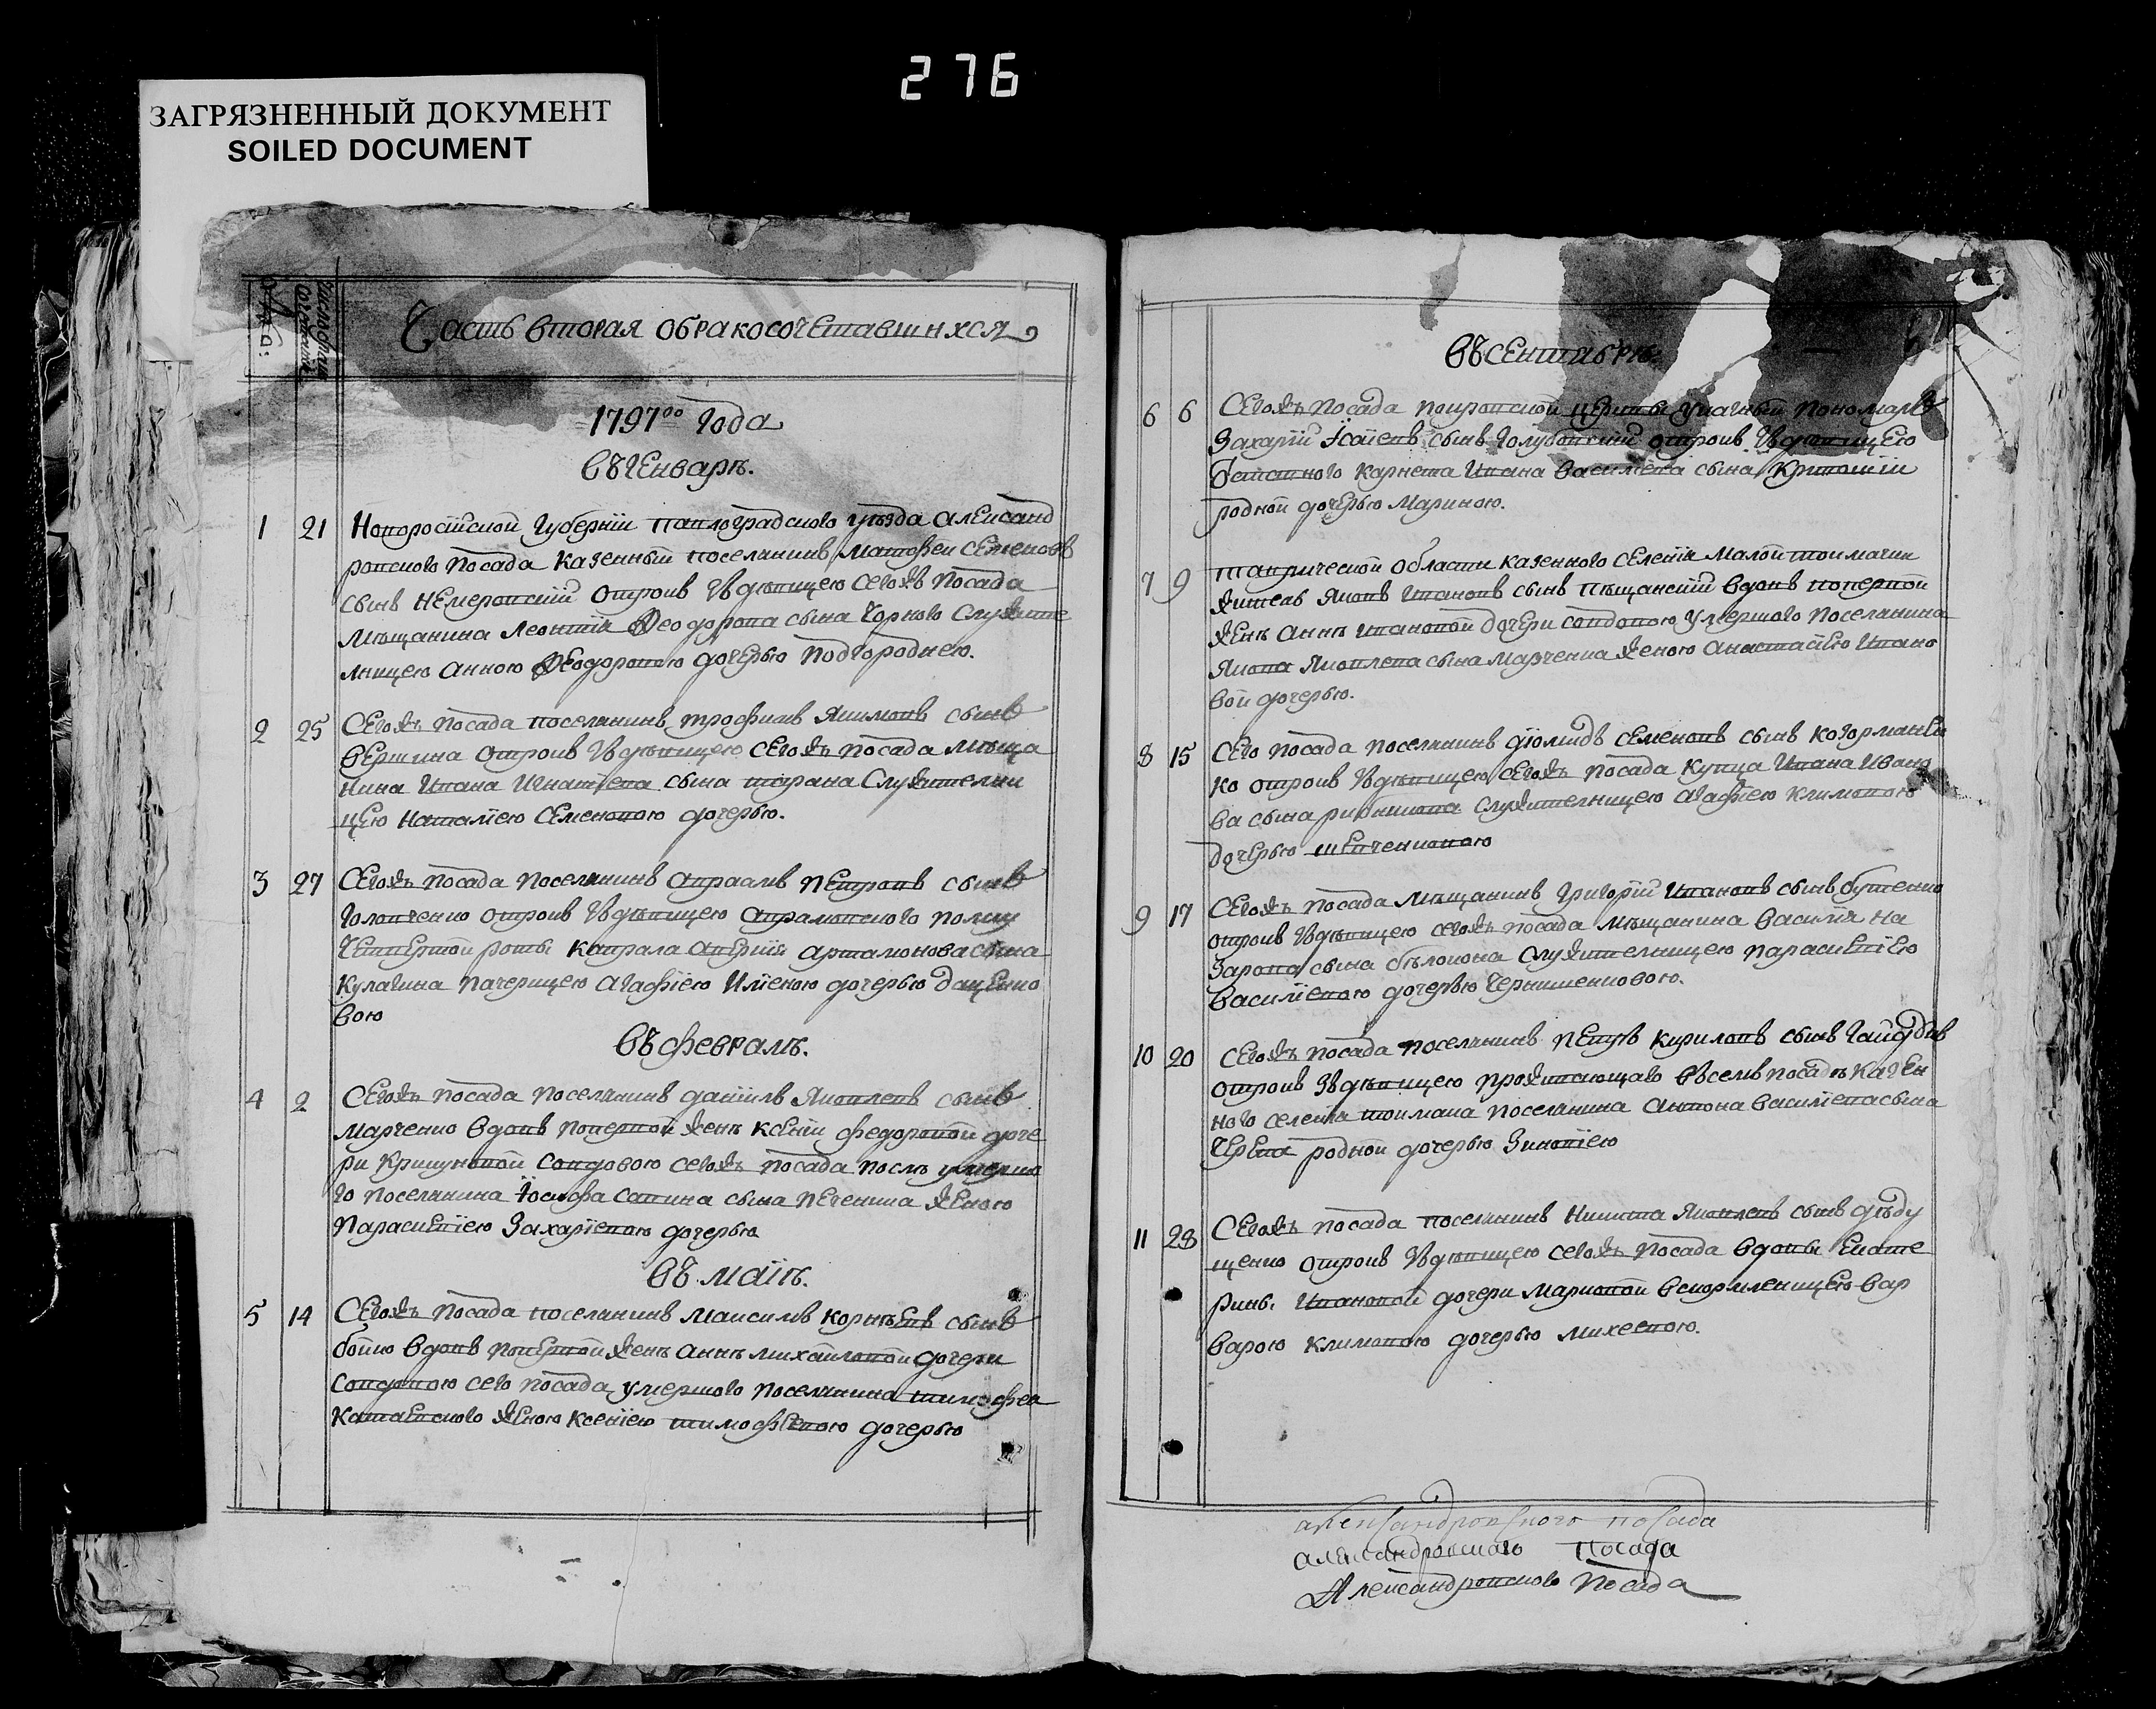 276
ЗАГРЯЗНЕННЫЙ ДОКУМЕНТ
SOILED DOCUMENT
Часть вторая обракосочетавшихся
1797го года
въ Генварѣ.
1 21 Новороссійской Губерніи Павлоградского уѣзда Александ
ровского посада казенный поселянинъ Матфеи Семеновъ
сынъ Немеровскій отрокъ здѣвицею сегожъ посада
мѣщанина Леонтія Феодорова сына Чорного служите
лницею Анною Феодоровою дочерью Подгороднею.
2 25 Сегожъ посада поселянинъ трофимъ Якимовъ сынъ
вершина отрокъ здѣвицею сегожъ посада мѣща
нина Ивана Игнатіева сына тарана служителни
цею Наталіею Семеновою дочерью.
3 27 Сегожъ посада поселянинъ Авраамъ Петровъ сынъ
Головченко отрокъ здѣвицею полку
Четвертой роты капрала Артамонова сына
Кулагина пачерицею Агафіею Иліеною дочерью Даценко
вою
въ февралѣ.
4 2 Сегожъ посада поселянинъ даніилъ Яковлевъ сынъ
Марченко вдовъ попервой женѣ Ксеніи федоровой доче
ри Крикуновой совдовою сегожъ посада послѣ умерша
го поселянина Іосифа Савина сына Печеника женою
Параскевіею Захаріевою дочерью
въ маіи.
5 14 Сегожъ посада поселянинъ Максимъ Корнѣевъ сынъ
бойко вдовъ попервой женѣ Аннѣ Михайловой дочери
совдовою сего посада умершого поселянина тимофея
Катаевского женою Ксеніею тимофѣевою дочерью
въ сентябрѣ.
6 6 Сегожъ посада покровской церкви указный пономарь
Захарій Ісаіевъ сынъ Голубовскій отрокъ здѣвицею
карнета Ивана Василіева сына
родной дочерью Мариною.
7 9 Таврической области казенного селенія Малой токмачки
житель Яковъ Ивановъ сынъ Пѣщанскій вдовъ попервой
женѣ Аннѣ Ивановой дочери совдовою умершого поселянина
Якова Яковлева сына Марченка женою Анастасіею Ивано
вой дочерью.
8 15 Сего посада поселянинъ діомидъ Семеновъ сынъ
ко отрокъ здѣвицею сегожъ посада купца Ивана Ивано
ва сына служителницею Агафіею Климовою
дочерью шевченковою
9 17 Сегожъ посада мѣщанинъ Григорій Ивановъ сынъ бутенко
отрокъ здѣвицею сегожъ посада мѣщанина Василія На
зарова сына бѣлокона служителницею Параскевіею
Василіевою дочерью Чернишенковою.
10 20 Сегожъ посада поселянинъ Петръ Кириловъ сынъ Гайдукъ
отрокъ здѣвицею проживающаго всемъ посадѣ казен
ного селенія токмака поселянина Антона Василіева сына
родной дочерью Зиновіею
11 28 Сегожъ посада поселянинъ Никита Яковлевъ сынъ дѣду
щенко отрокъ здѣвицею сегожъ посада вдовы Екате
рины Ивановой дочери Марковой вскормленицею вар
варою Климовою дочерью михеевою.
Александровского посада
Александровского посада
Александровского посада